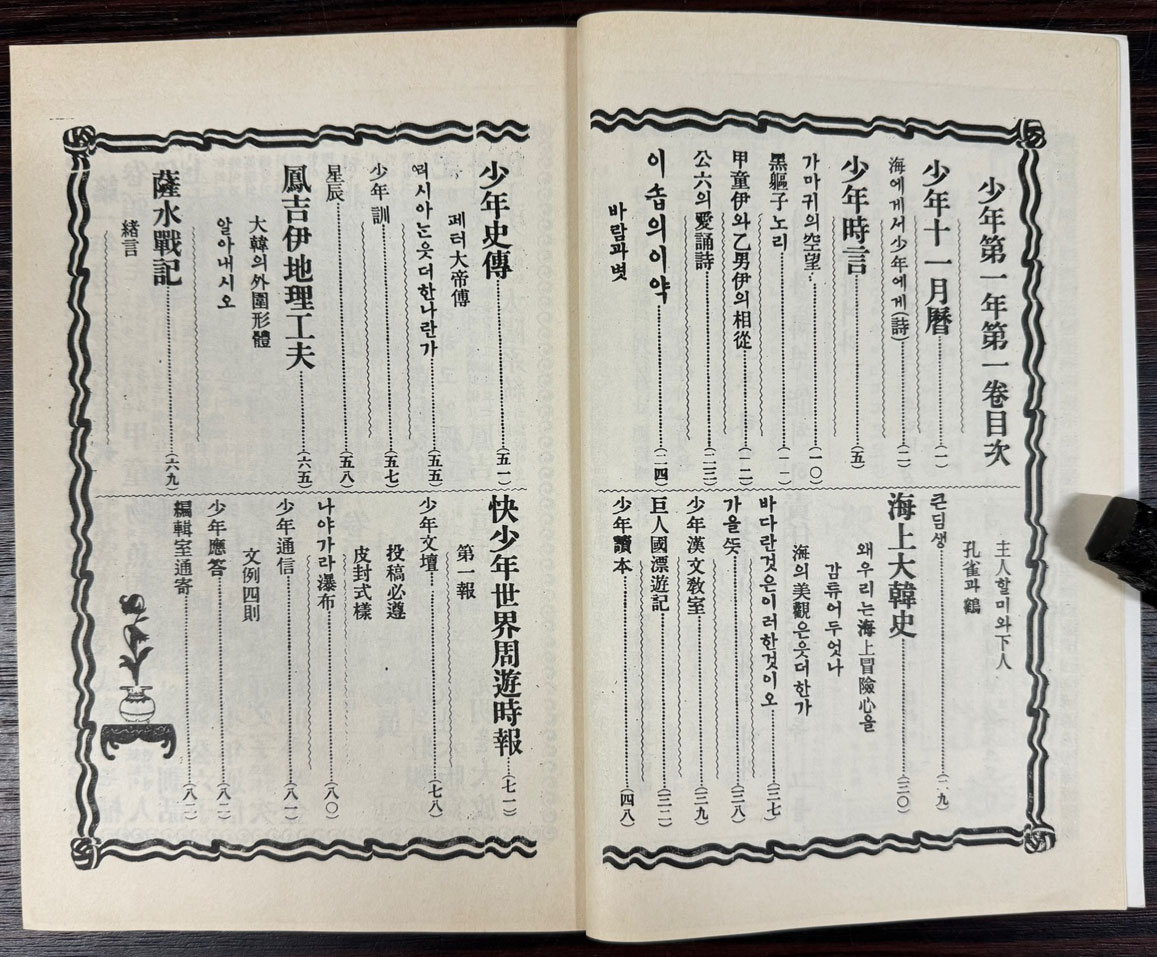 少年第一年第一卷目次
少年十一月曆(一)
海에게서少年에게(詩)(二)
少年時言(五)
가마귀의空望(一〇)
黑軀子노리(一一)
甲童伊와乙男伊의相從(一二)
公六의愛誦詩(二三)
이솝의이약(二四)
바람과볏
主人할미와下人
孔雀과鶴
큰딤생(二九)
海上大韓史(三〇)
왜우리는海上冒險心을
감튜어두엇나
海의美觀은웃더한가
바다란것은이러한것이오(三七)
가을ᄯᅳᆺ(三八)
少年漢文敎室(三九)
巨人國漂遊記(四二)
少年讀本(四八)
少年史傳(五一)
페터大帝傳
러시아는웃더한나란가(五五)
少年訓(五七)
星辰(五八)
鳳吉伊地理工夫(六五)
大韓의外圍形體
알아내시오
薩水戰記(六九)
緖言
快少年世界周遊時報(七一)
第一報
少年文壇(七八)
投稿必遵
皮封式樣
나야가라瀑布(八〇)
少年通信(八一)
文例四則
少年應答(八二)
編輯室通寄(八二)